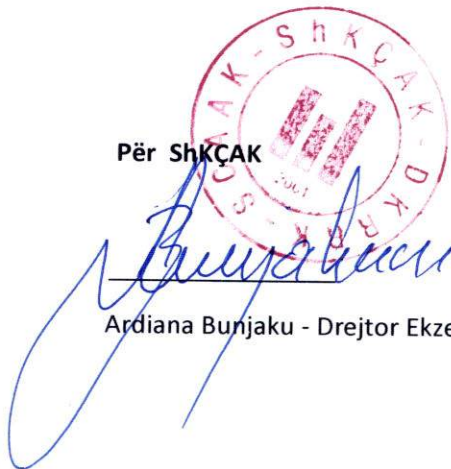 ShKÇAK - DKRAK - SCAAK -
2001
Për ShKÇAK
Ardiana Bunjaku - Drejtor Ekze